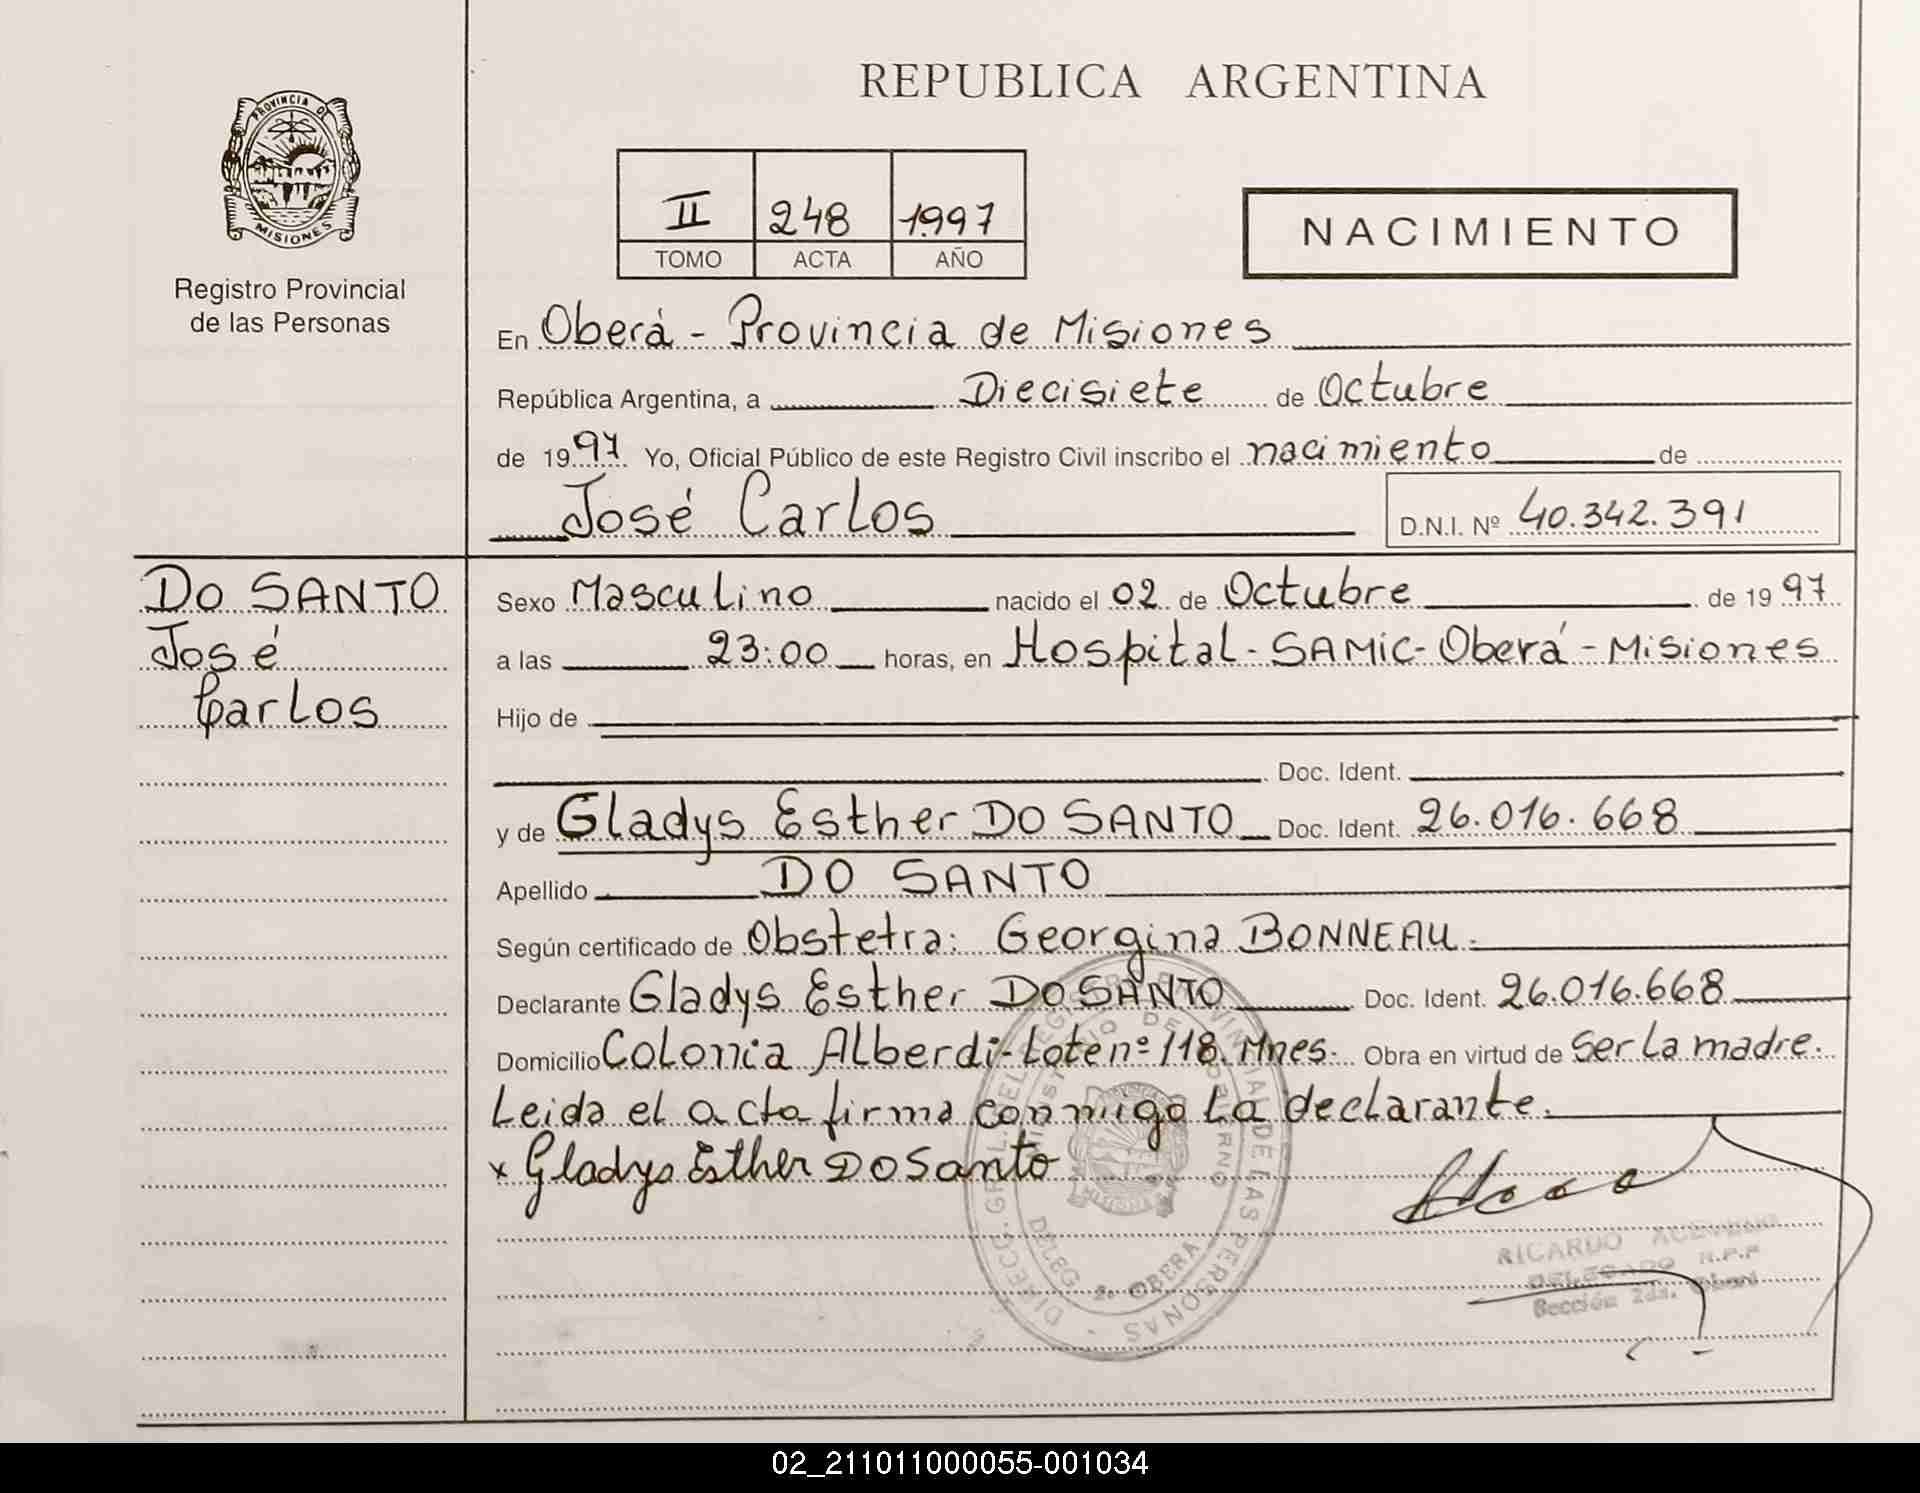 REPUBLICA ARGENTINA
PROVINCIA DE
MISIONES
Registro Provincial
de las Personas
II 248 1997
TOMO ACTA AÑO
NACIMIENTO
En Oberá - Provincia de Misiones
República Argentina, a Diecisiete de Octubre
de 1997 Yo, Oficial Público de este Registro Civil inscribo el nacimiento de
José Carlos D.N.I. Nº 40.342.391
DO SANTO
José
Carlos
Sexo Masculino nacido el 02 de Octubre de 1997
a las 23:00 horas, en Hospital - SAMIC - Oberá - Misiones
Hijo de
Doc. Ident.
y de Gladys Esther DO SANTO Doc. Ident. 26.016.668
Apellido DO SANTO
Según certificado de Obstetra: Georgina BONNEAU.
Declarante Gladys Esther DO SANTO Doc. Ident. 26.016.668
Domicilio Colonia Alberdi - Lote nº 118. Mnes. Obra en virtud de Ser la madre.
Leida el acta firma conmigo la declarante.
x Gladys Esther DO Santo
DIRECC. GRAL. DEL REGISTRO PROVINCIAL DE LAS PERSONAS
MINISTERIO DE GOBIERNO
DELEG. 2a OBERA
RICARDO ACEVEDO
DELEGADO R.P.P
Sección 2da. Oberá
02_211011000055-001034